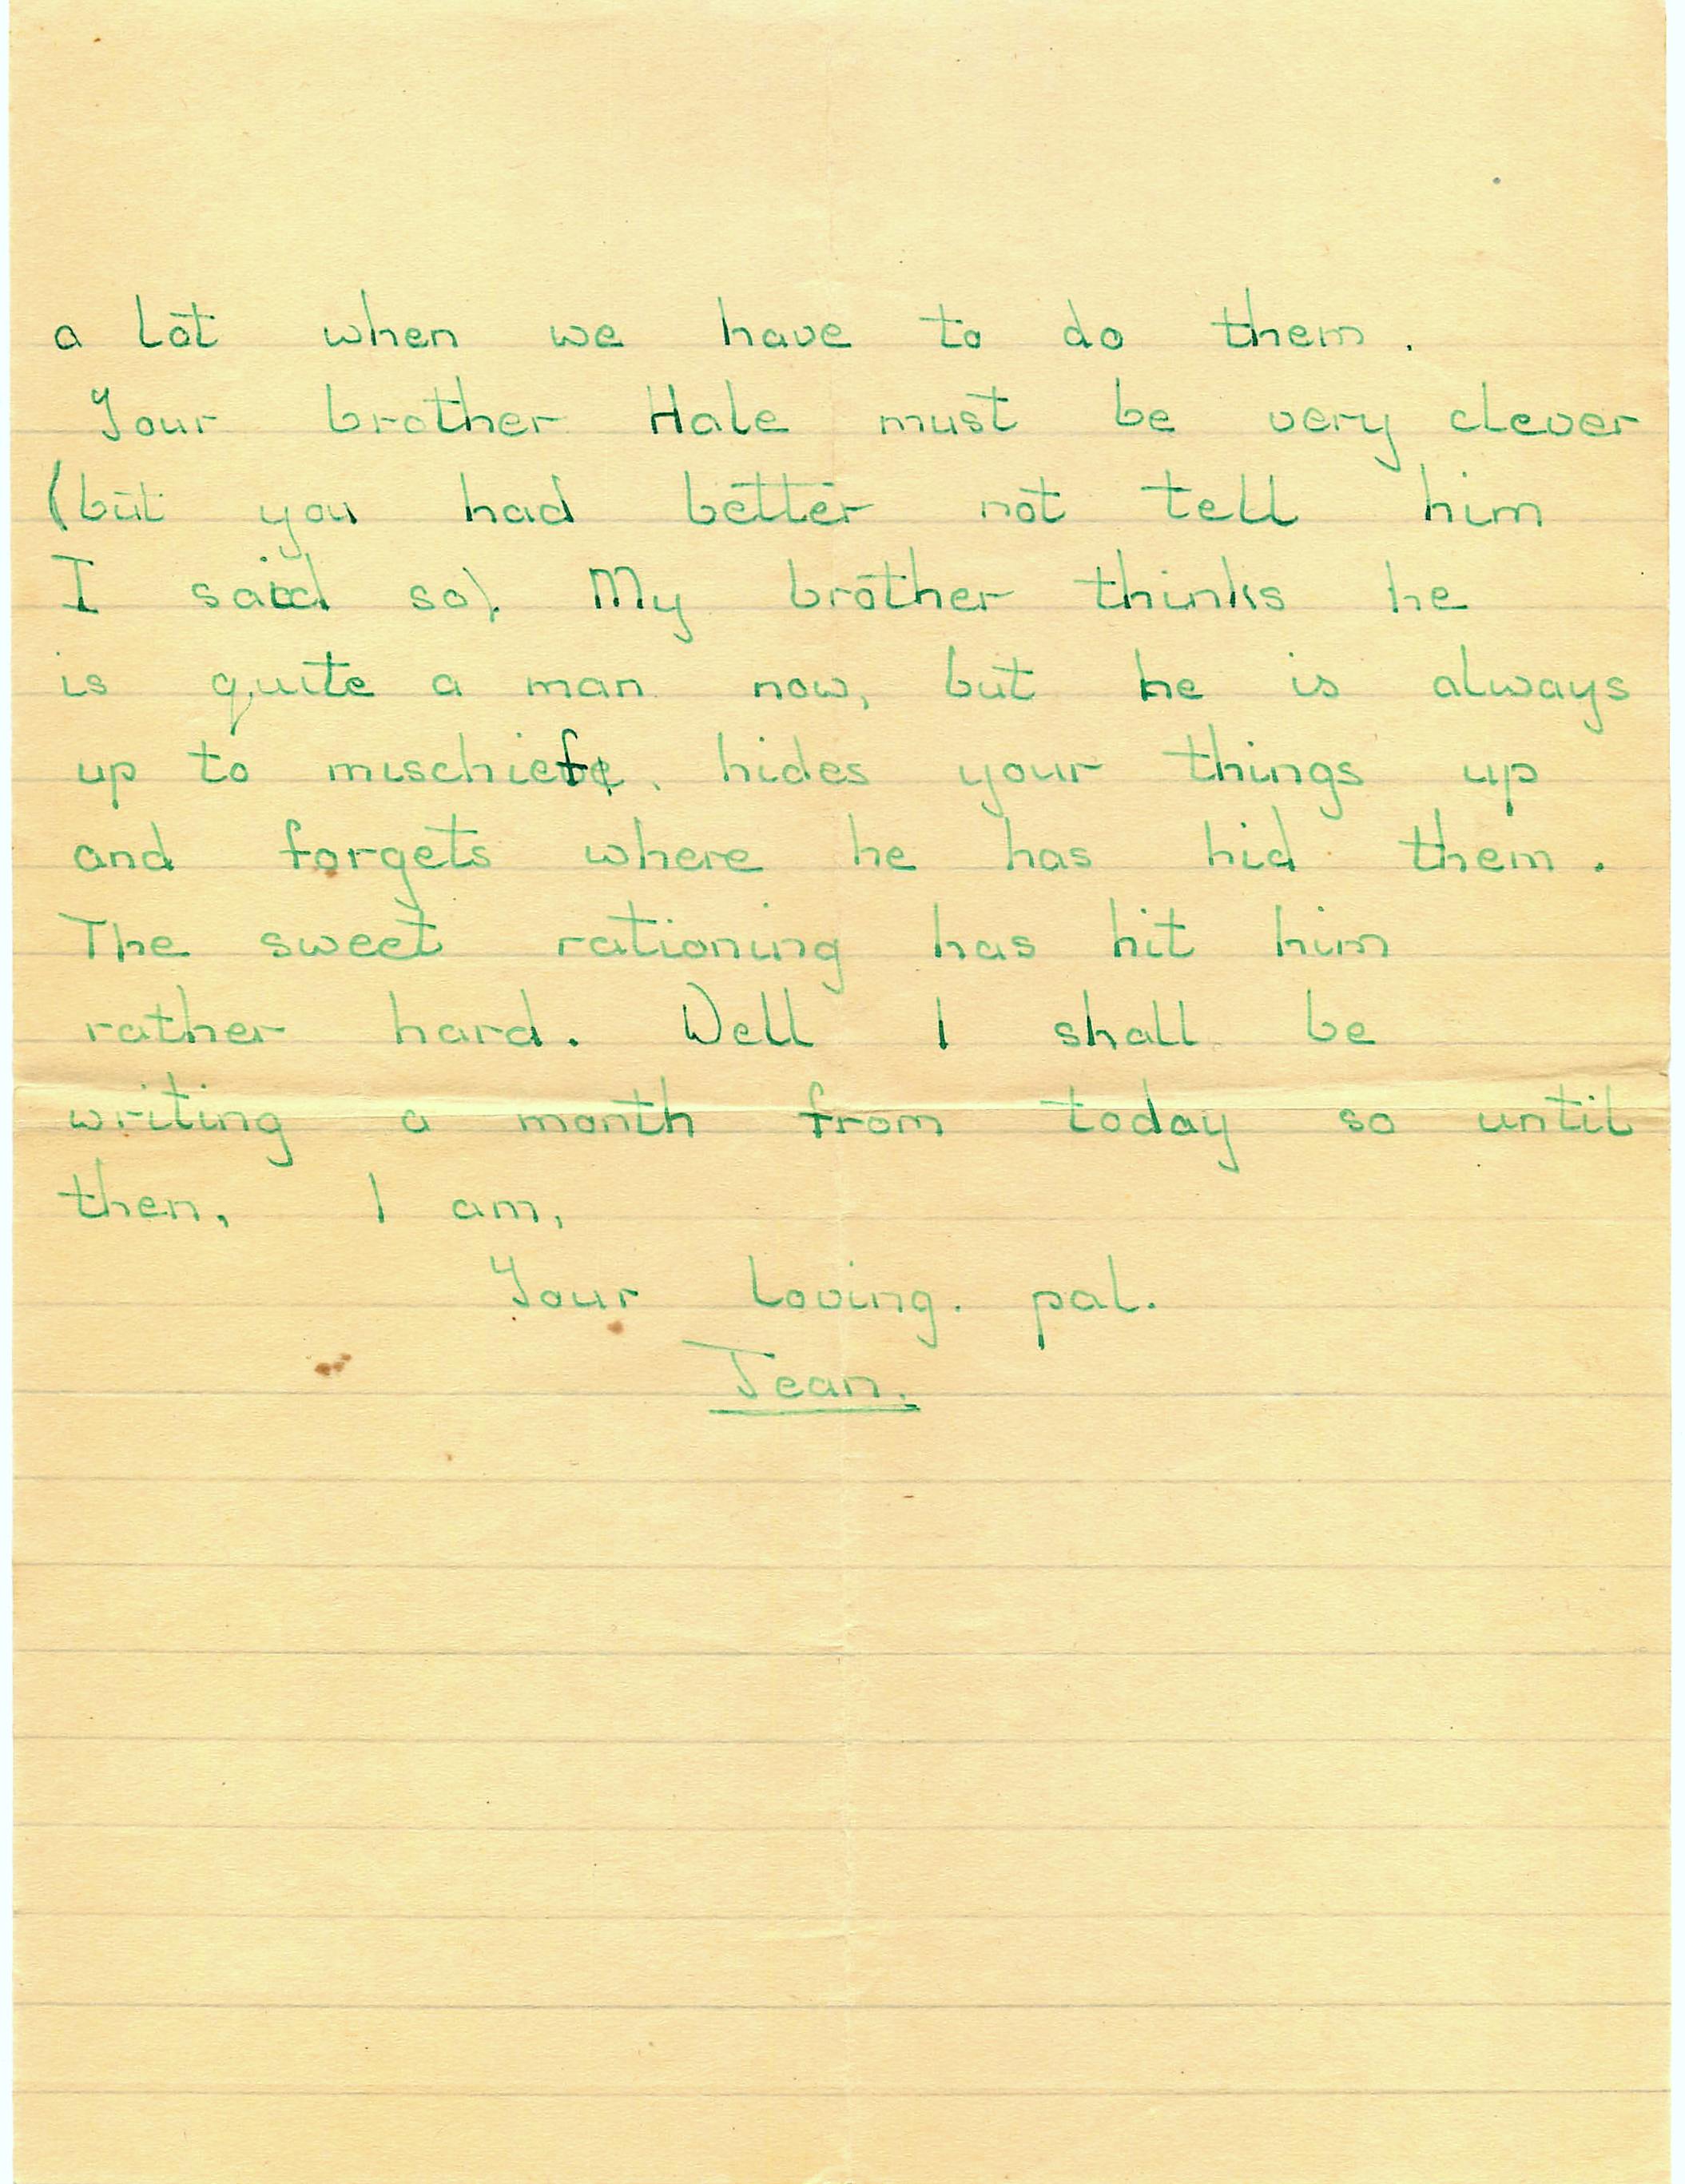 a lot when we have to do them.
Your brother Hale must be very clever
(but you had better not tell him
I said so). My brother thinks he
is quite a man now, but he is always
up to mischief, hides your things up
and forgets where he has hid them.
The sweet rationing has hit him
rather hard. Well I shall be
writing a month from today so until
then, I am,
Your Loving. pal.
Jean.